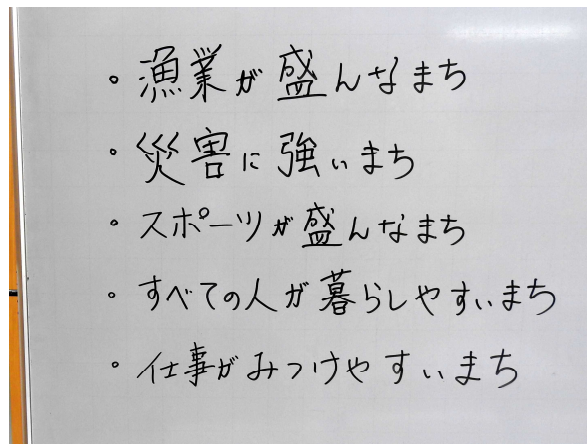 。漁業が盛んなまち
。災害に強いまち
。スポーツが盛んなまち
。すべての人が暮らしやすいまち
。仕事がみつけやすいまち